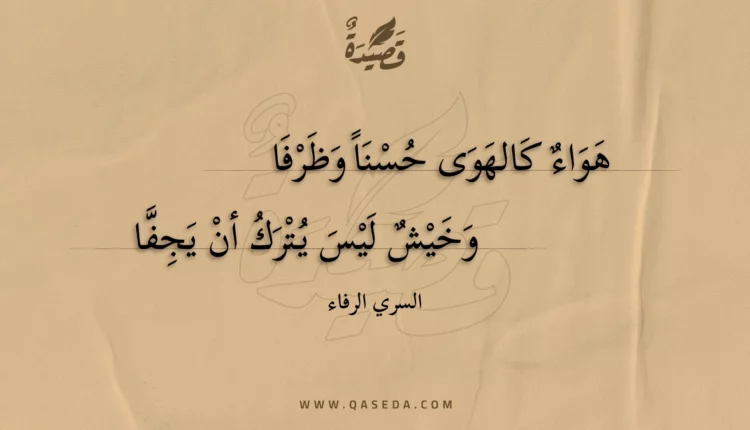 قَصِيْدَةٌ
هَوَاءٌ كَالهَوَى حُسْنَاً وَظَرْفَا
وَخَيْشٌ لَيْسَ يُتْرَكُ أنْ يَجِفَّا
السري الرفاء
WWW.QASEDA.COM